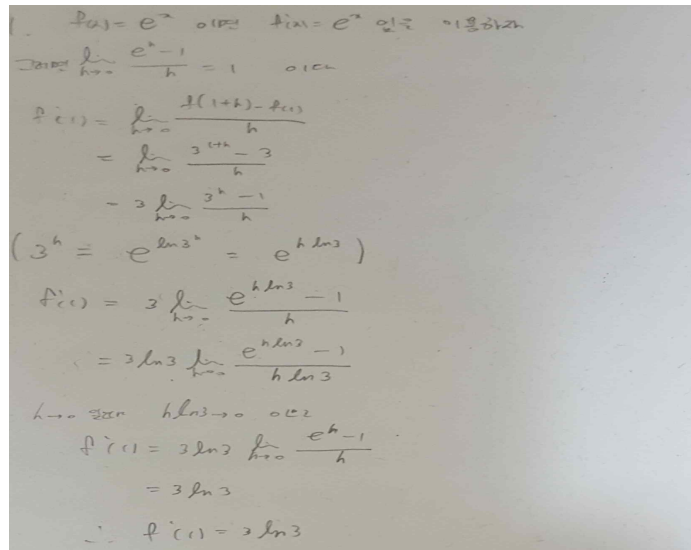 1. f(x) = e^x 이면 f'(x) = e^x 임을 이용하자
그러면 lim_{h→0} (e^h - 1)/h = 1 이다
f'(1) = lim_{h→0} (f(1+h) - f(1))/h
= lim_{h→0} (3^{1+h} - 3)/h
= 3 lim_{h→0} (3^h - 1)/h
( 3^h = e^{ln3^h} = e^{h ln3} )
f'(1) = 3 lim_{h→0} (e^{h ln3} - 1)/h
= 3 ln3 lim_{h→0} (e^{h ln3} - 1)/(h ln3)
h→0 일때 h ln3→0 이므로
f'(1) = 3 ln3 lim_{h→0} (e^h - 1)/h
= 3 ln3
∴ f'(1) = 3 ln3